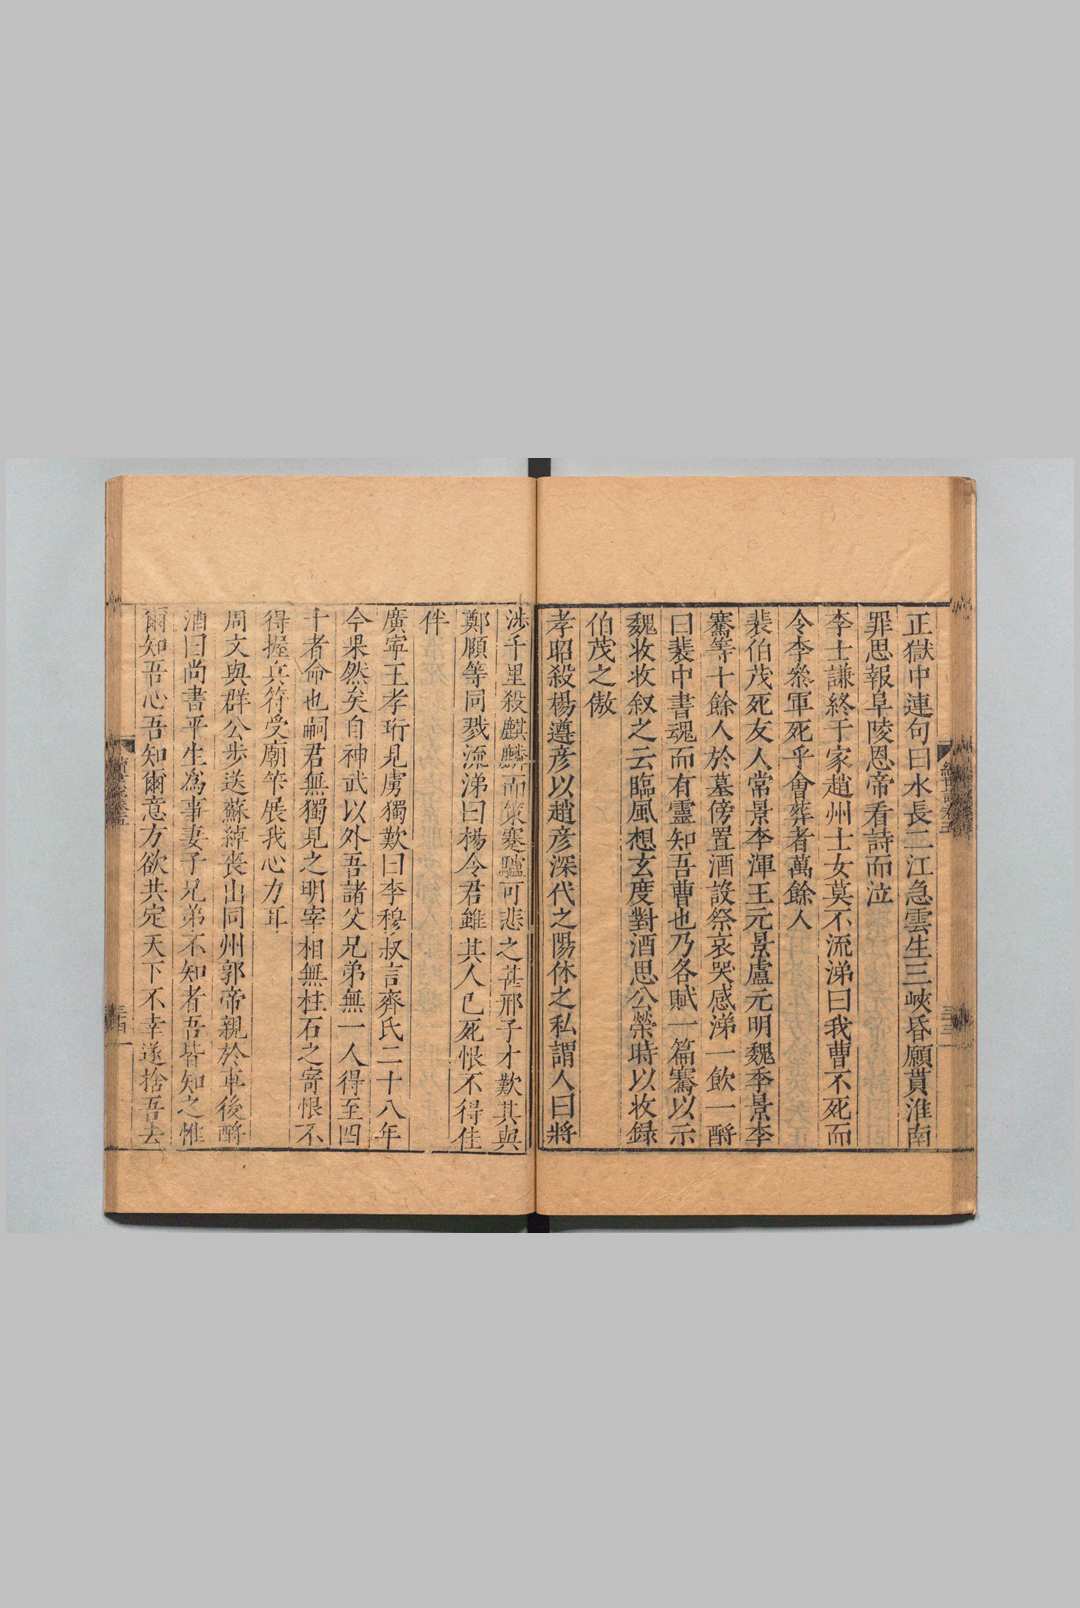 正獄中連句曰水長二江急雲生三峽昏願貰淮南
罪思報阜陵恩帝看詩而泣
李士謙終于家趙州士女莫不流涕曰我曹不死而
令李叅軍死乎會葬者萬餘人
裴伯茂死友人常景李渾王元景盧元明魏季景李
騫等十餘人於墓傍置酒設祭哀哭感涕一飲一酹
曰裴中書魂而有靈知吾曹也乃各賦一篇騫以示
魏收收叙之云臨風想玄度對酒思公榮時以收録
伯茂之傲
孝昭殺楊遵彦以趙彦深代之陽休之私謂人曰將
涉千里殺麒麟而策蹇驢可悲之甚邢子才歎其與
鄭頤等同戮流涕曰楊令君雖其人已死恨不得佳
伴
廣寧王孝珩見虜獨歎曰李穆叔言齊氏二十八年
今果然矣自神武以外吾諸父兄弟無一人得至四
十者命也嗣君無獨見之明宰相無柱石之寄恨不
得握兵符受廟筭展我心力耳
周文與群公步送蘇綽喪出同州郭帝親於車後酹
酒曰尚書平生為事妻子兄弟不知者吾皆知之惟
爾知吾心吾知爾意方欲共定天下不幸遂捨吾去